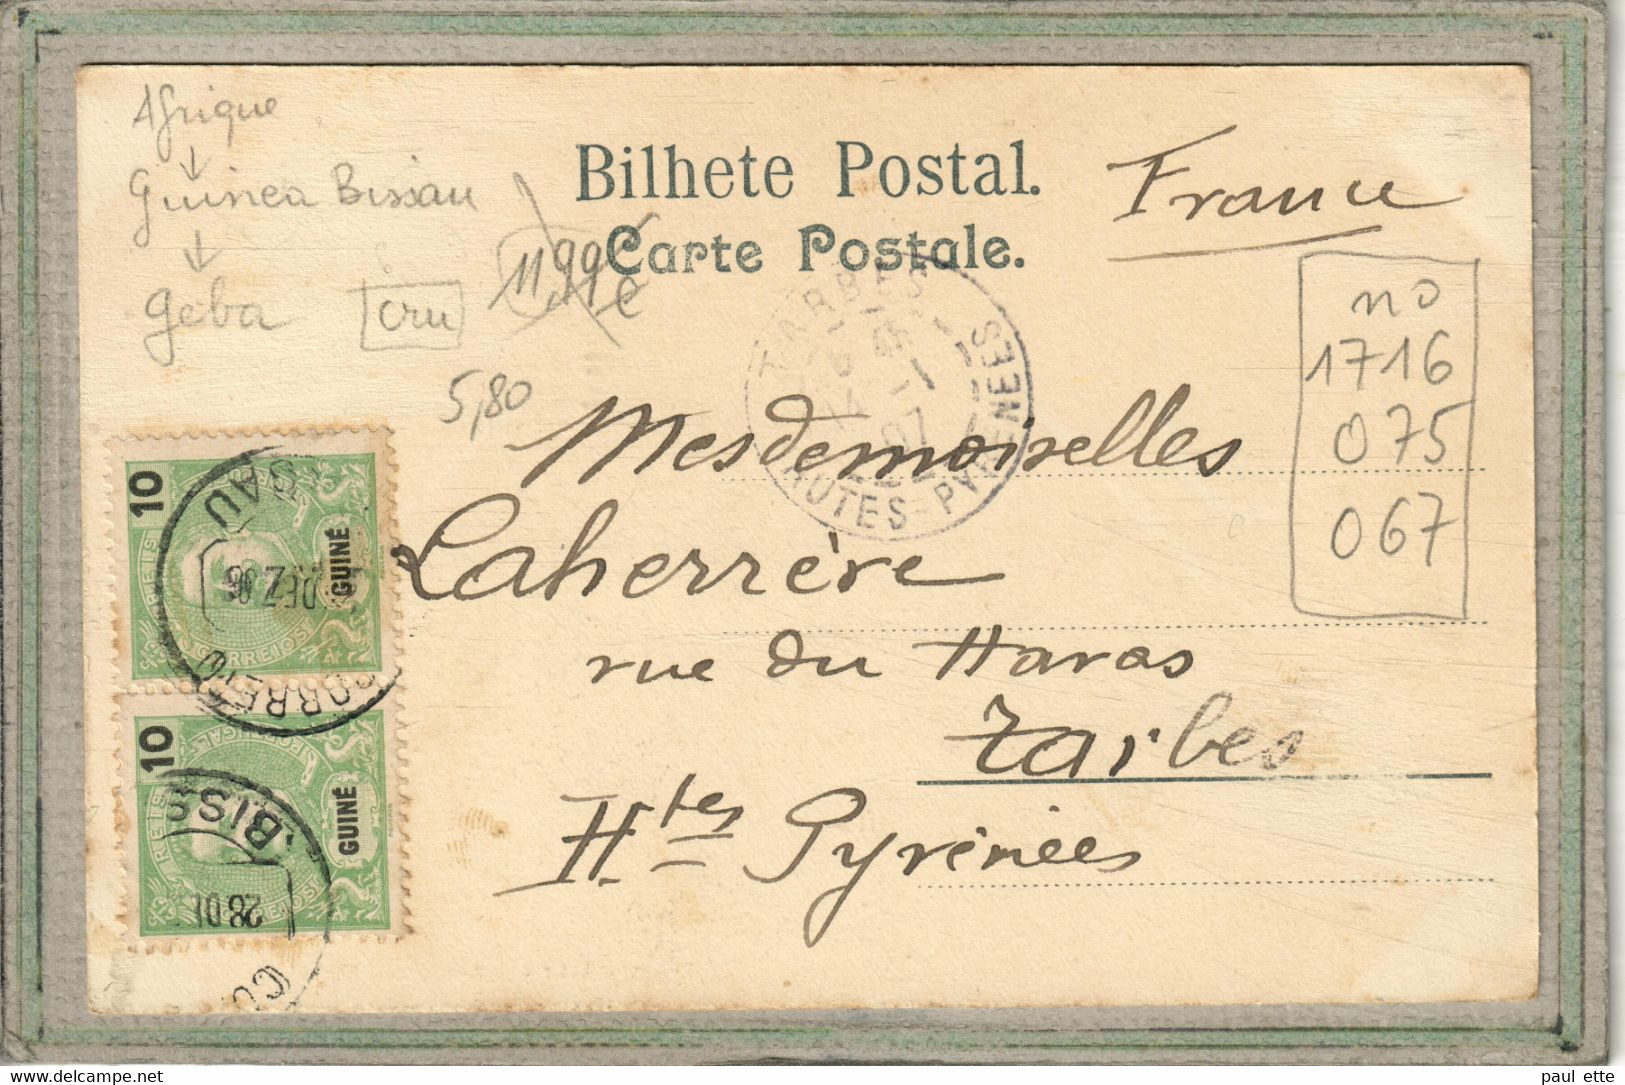 Afrique
↓
Guinea Bissau
↓
Geba
cru
11,99€
5,80
Bilhete Postal.
Carte Postale.
France
no
1716
075
067
TARBES
07
HAUTES-PYRENEES
Mesdemoiselles
Laherrère
rue du Haras
Tarbes
Htes Pyrénées
10
REIS
GUINÉ
CORREIOS
BISSAU
DEZ 06
CORREIO
10
REIS
PORTUGAL
GUINÉ
CORREIOS
BISS
28 DE
CO
www.delcampe.net
paul ette